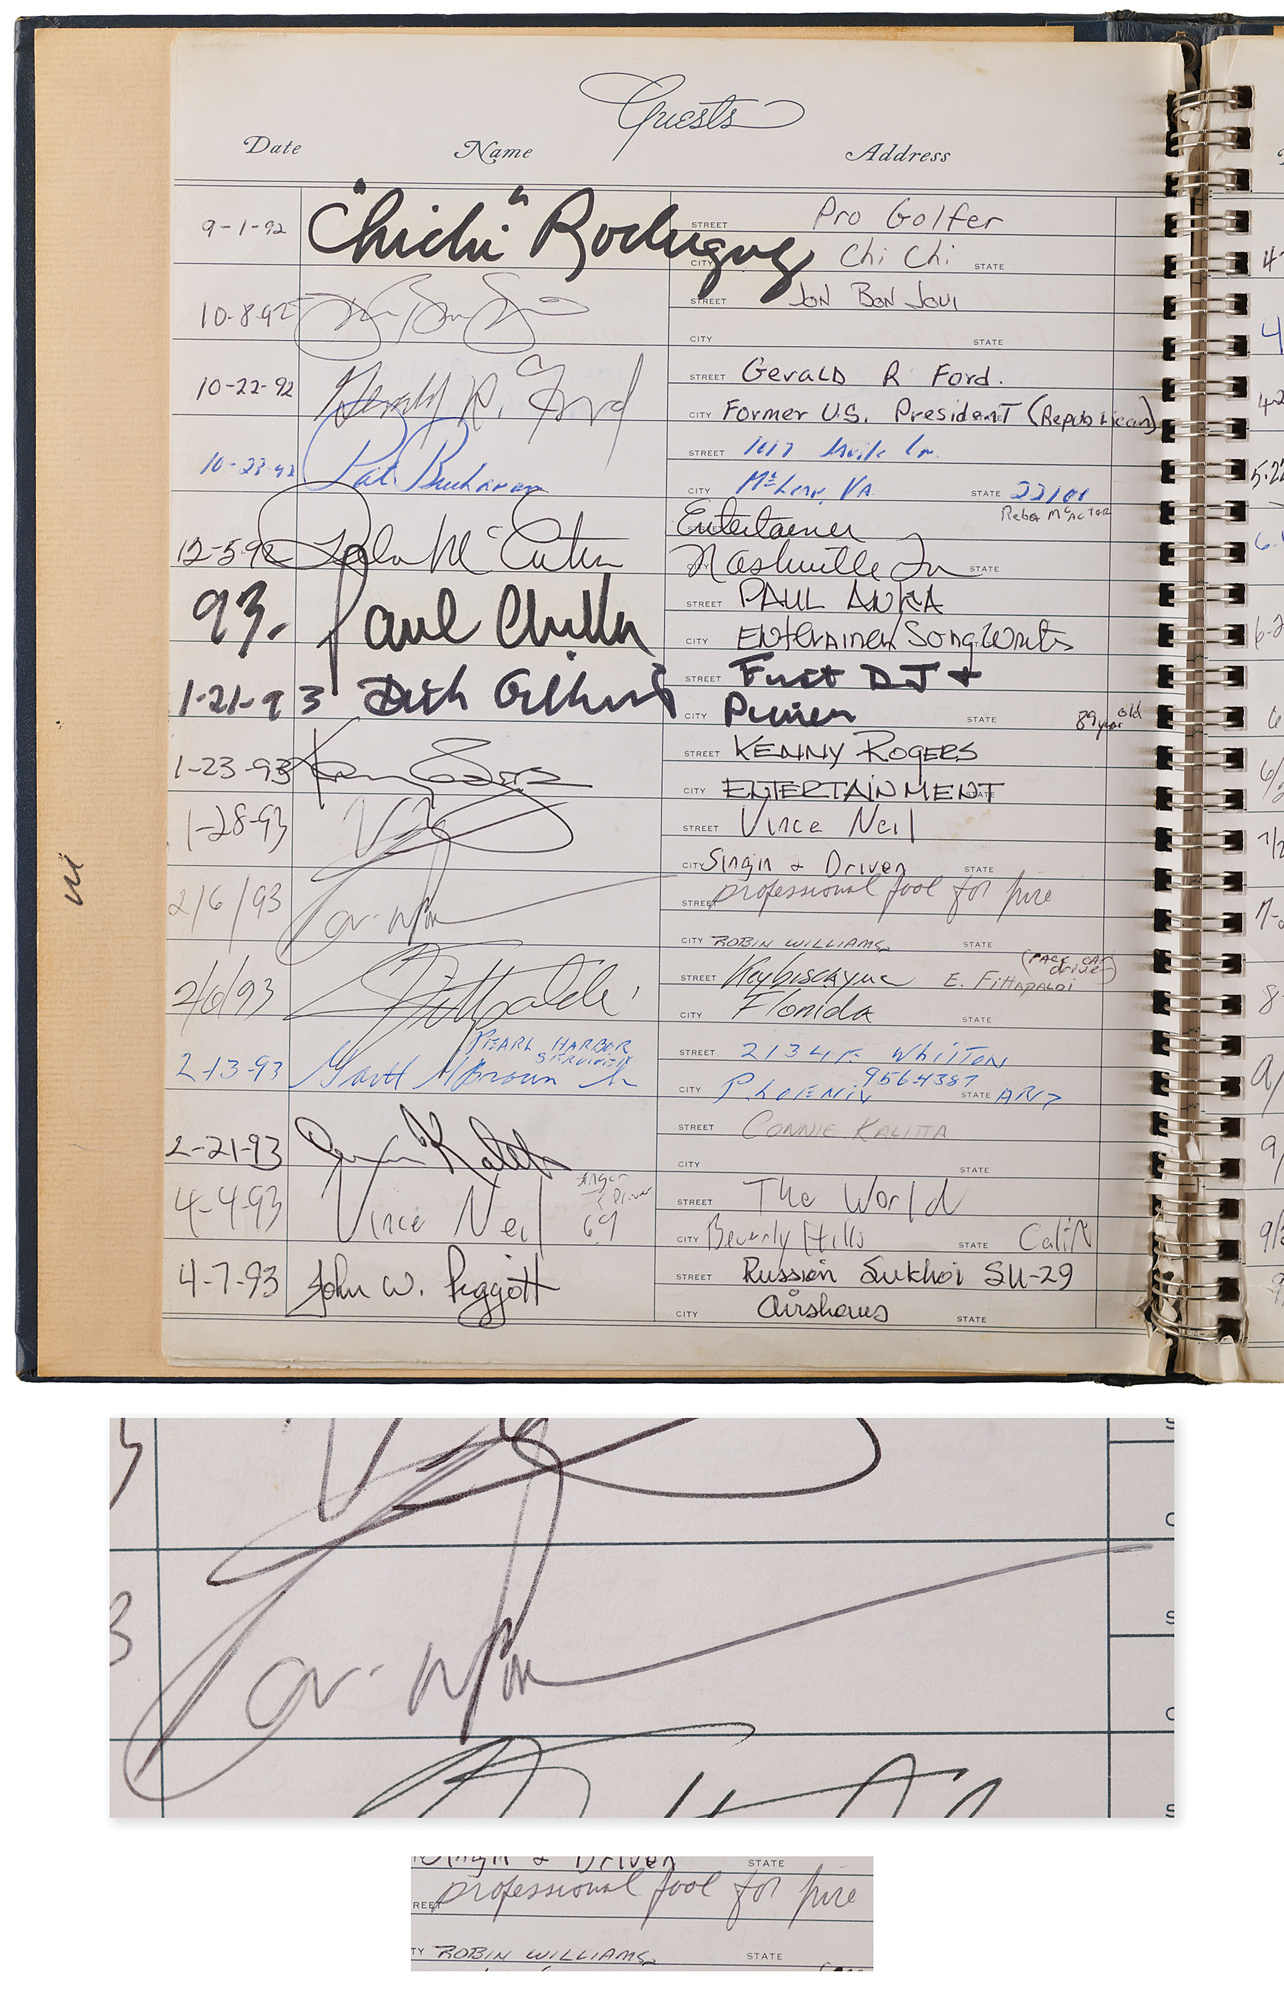 Guests
Date Name Address
9-1-92 "Chichi" Rodriguez STREET Pro Golfer
CITY Chi Chi STATE
10-8-92 STREET JON BON JOVI
CITY STATE
10-22-92 Gerald R. Ford STREET GeraLD R Ford.
CITY Former U.S. President (Republican)
10-23-92 Pat Buchanan STREET 1017
CITY McLean, VA. STATE 22101
Entertainer Reba McAcTOR
12-5-92 Reba McEntire Nashville Tn STATE
93. Paul STREET PAUL ANKA
CITY Entertainer SongWriter
1-21-93 Dick STREET First DJ +
CITY STATE 89 year old
1-23-93 STREET KENNY ROGERS
CITY ENTERTAINMENT STATE
1-28-93 STREET Vince Neil
CITY Singin & Driven STATE
2/6/93 STREET professional fool for hire
CITY ROBIN WILLIAMS STATE
2/6/93 Fittipaldi STREET Keybiscayne E. Fittapaldi (PACE CAR driver)
CITY Florida STATE
PEARL HARBOR
SURVIVOR
2-13-93 Brown Jr STREET 2134 E. Whitton
CITY Phoenix 9564387 STATE ARIZ
2-21-93 Kalitta STREET CONNIE KALITTA
CITY STATE
4-4-93 Vince Neil Singer & Driver 69 STREET The World
CITY Beverly Hills STATE Calif
4-7-93 John W. Piggott STREET Russian Sukhoi SU-29
CITY Airshows STATE
Singin & Driven STATE
REET professional fool for hire
TY ROBIN WILLIAMS STATE